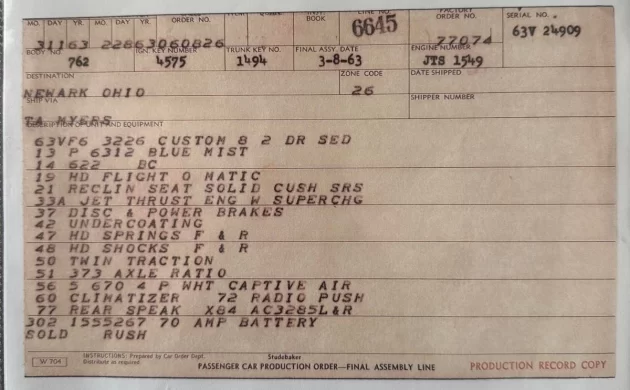 MO. DAY YR. MO. DAY YR. ORDER NO. BOOK LINE NO. FACTORY ORDER NO. SERIAL NO.
31163 22863 060826 6645 77074 63V 24909
BODY NO. IGN. KEY NUMBER TRUNK KEY NO. FINAL ASSY. DATE ENGINE NUMBER
762 4575 1494 3-8-63 JTS 1549
DESTINATION ZONE CODE DATE SHIPPED
NEWARK OHIO 26
SHIP VIA SHIPPER NUMBER
TA MYERS
DESCRIPTION OF UNIT AND EQUIPMENT
63VF6 3226 CUSTOM 8 2 DR SED
13 P 6312 BLUE MIST
14 622 BC
19 HD FLIGHT O MATIC
21 RECLIN SEAT SOLID CUSH SRS
33A JET THRUST ENG W SUPERCHG
37 DISC & POWER BRAKES
42 UNDERCOATING
47 HD SPRINGS F & R
48 HD SHOCKS F & R
50 TWIN TRACTION
51 373 AXLE RATIO
56 5 670 4 P WHT CAPTIVE AIR
60 CLIMATIZER 72 RADIO PUSH
77 REAR SPEAK X84 AC3285L&R
302 1555267 70 AMP BATTERY
SOLD RUSH
W 704 INSTRUCTIONS: Prepared by Car Order Dept. Distribute as required.
Studebaker
PASSENGER CAR PRODUCTION ORDER—FINAL ASSEMBLY LINE PRODUCTION RECORD COPY